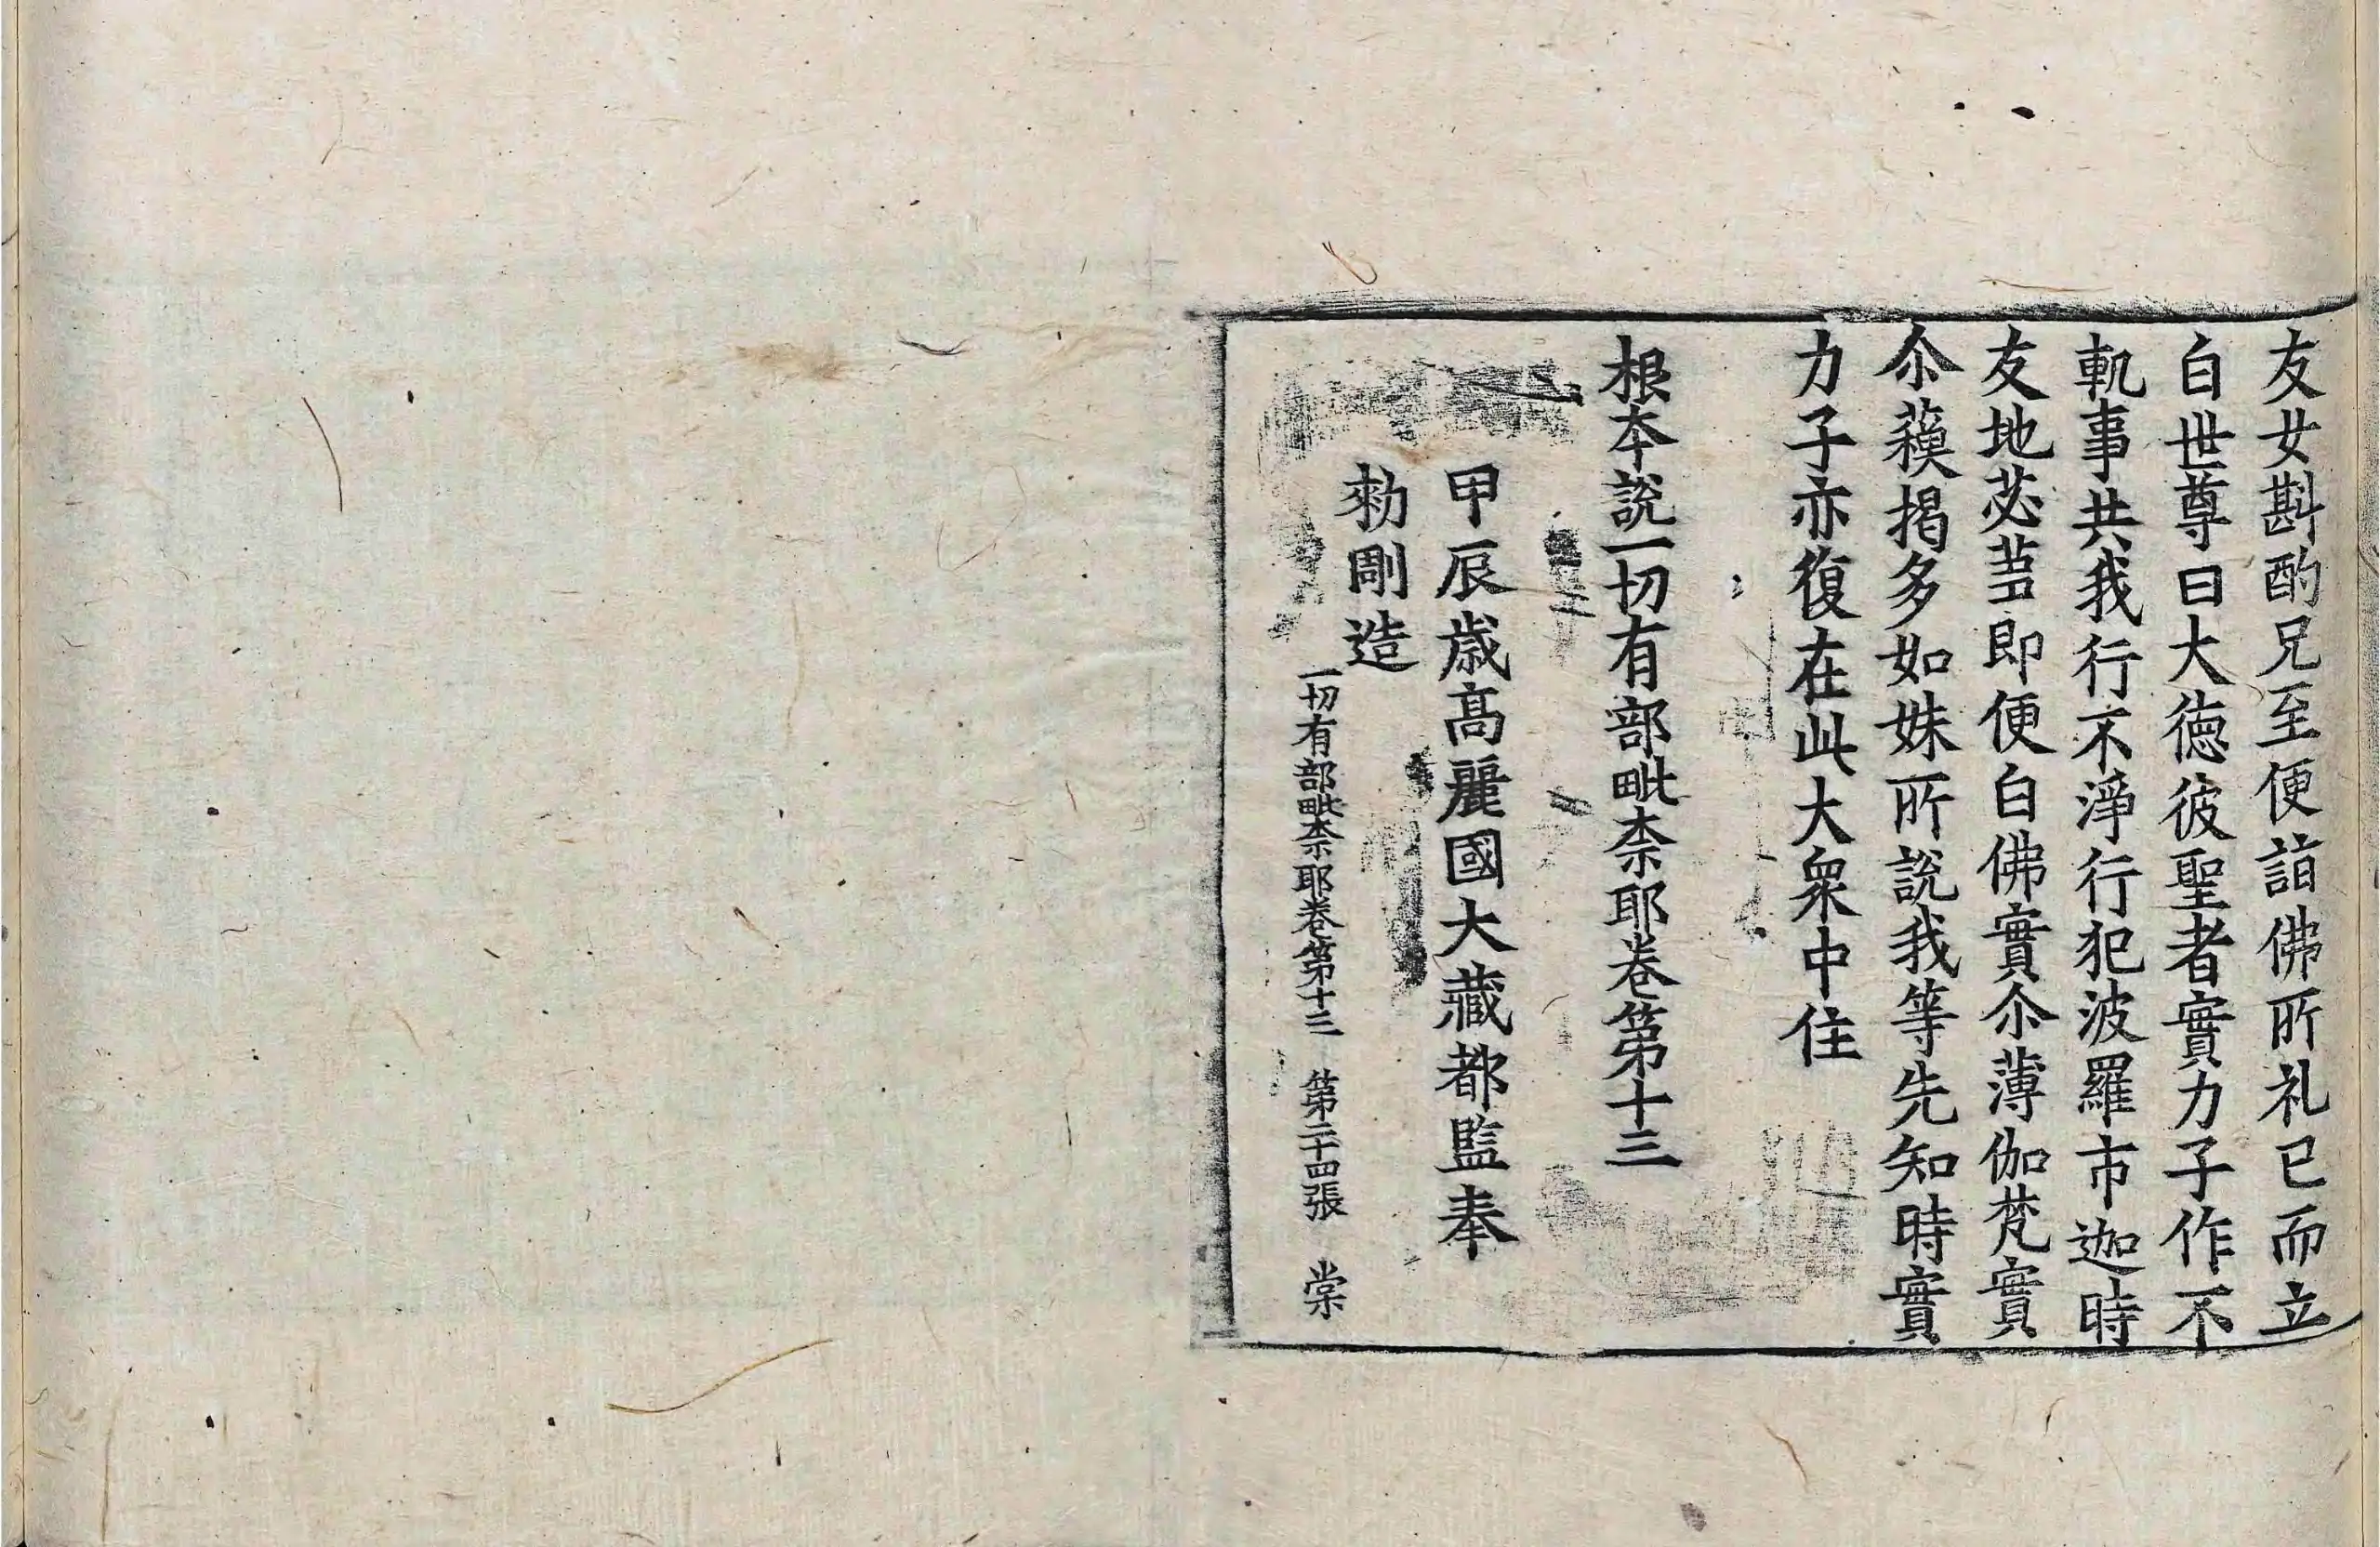 友女斟酌兄至便詣佛所礼已而立
白世尊曰大德彼聖者實力子作不
軌事共我行不淨行犯波羅市迦時
友地苾蒭即便白佛實尒薄伽梵實
尒蘓揭多如妹所說我等先知時實
力子亦復在此大衆中住
根本說一切有部毗柰耶卷第十三
甲辰歲高麗國大藏都監奉
勑彫造
一切有部毗柰耶卷第十三 第二十四張 棠